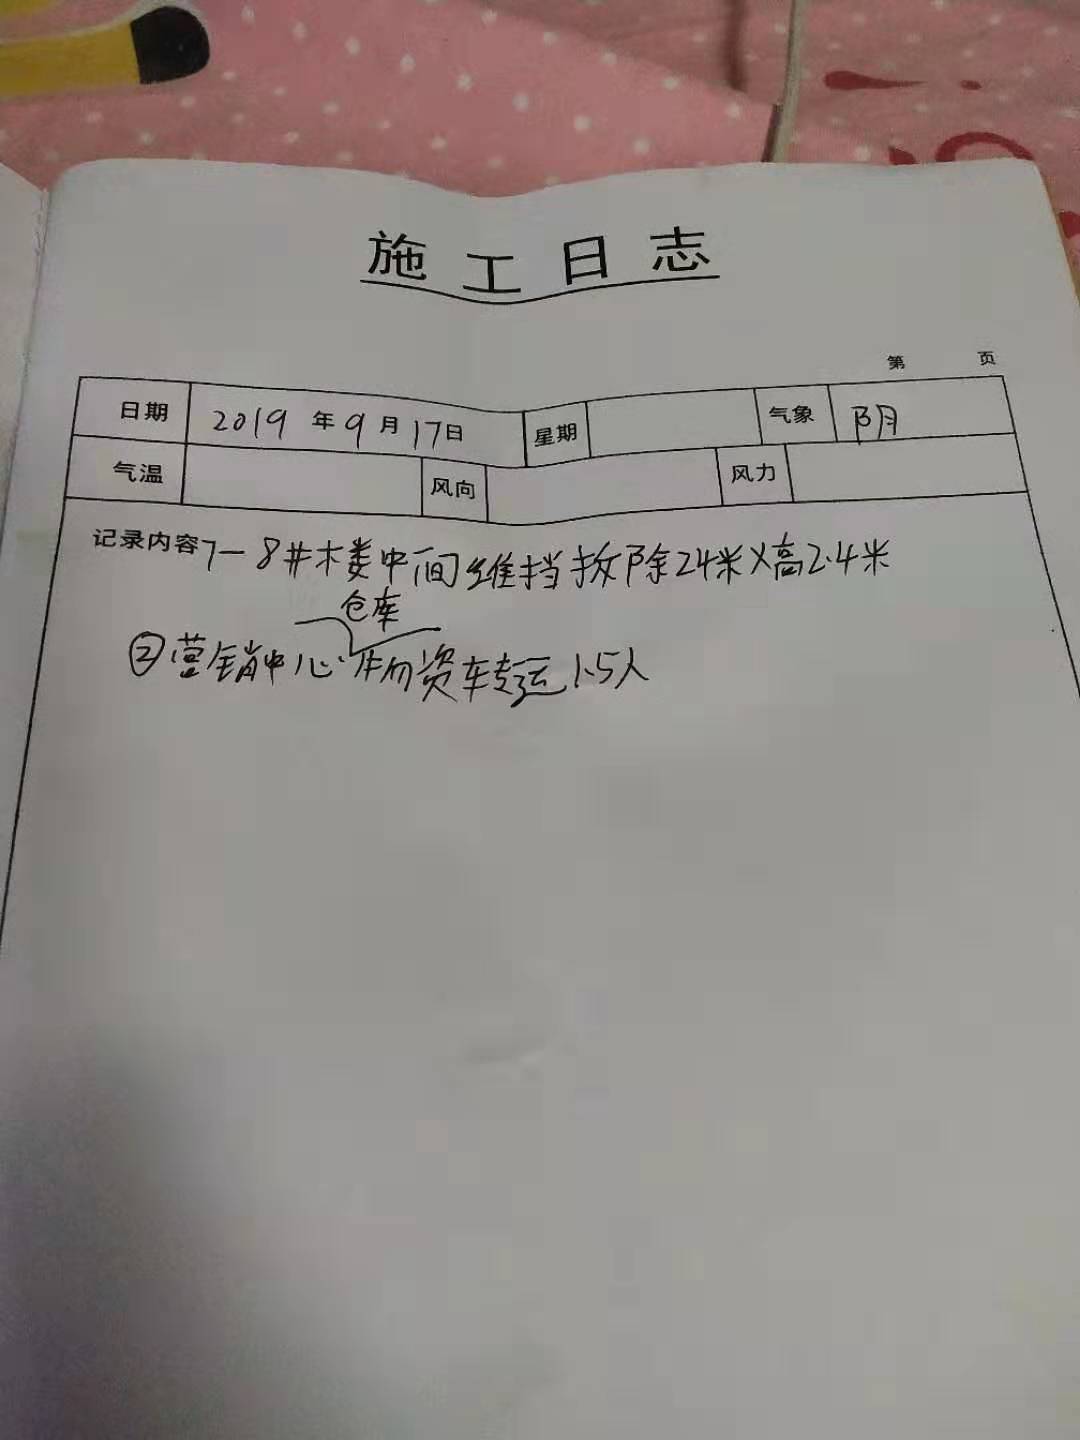 施工日志
第 页
日期 2019年9月17日 星期 气象 阴
气温 风向 风力
记录内容 7-8#木娄中间维挡拆除24米×高2.4米
仓库
②营销中心物资车专运1.5人